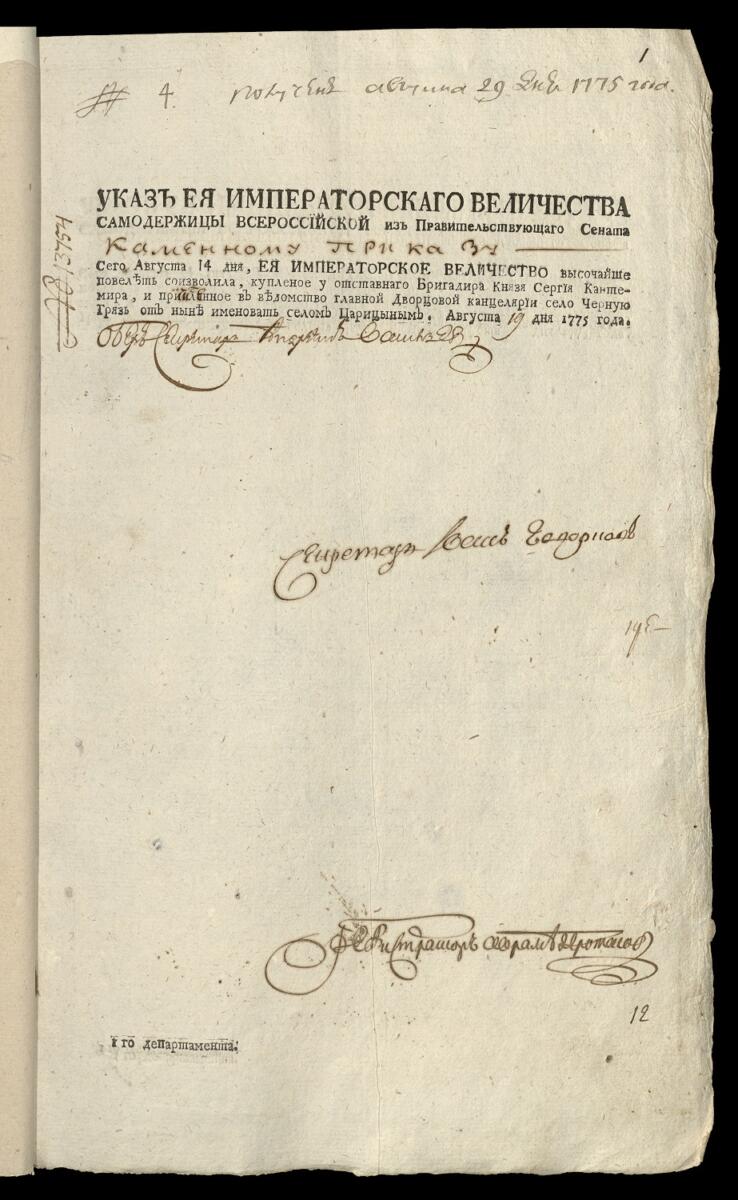 1
№ 4. получено августа 29 дня 1775 года.
УКАЗЪ ЕЯ ИМПЕРАТОРСКАГО ВЕЛИЧЕСТВА
САМОДЕРЖИЦЫ ВСЕРОССІЙСКОЙ изъ Правительствующаго Сената
Каменному приказу
Сего Августа 14 дня, ЕЯ ИМПЕРАТОРСКОЕ ВЕЛИЧЕСТВО высочайше
повелѣть соизволила, купленое у отставнаго Бригадира Князя Сергія Канте-
мира, и причисленное въ вѣдомство главной Дворцовой канцеляріи село Черную
Грязь отъ нынѣ именовать селомъ Царицынымъ. Августа 19 дня 1775 года.
Оберъ Секретарь
Секретарь
Регистраторъ Абрамъ Протасов
12
І го департамента.